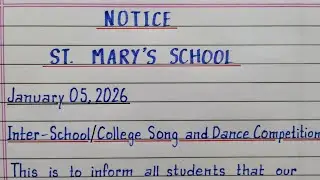 NOTICE
ST. MARY'S SCHOOL
January 05, 2026
Inter-School/College Song and Dance Competition
This is to inform all students that our